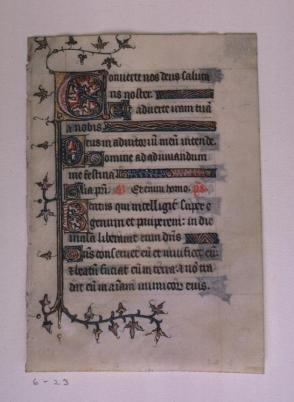 Converte nos deus saluta
ris noster.
Et averte iram tuā
a nobis
Deus in adiutoriū meū intende.
Domine ad adiuvandum
me festina
Gloria pr̄i. Et enim homo. ps
Beatus qui intelligit super e
genum et pauperem: in die
mala liberavit eum dn̄s
Dn̄s conservet eū et vivificet eū:
et beatū faciat eū in terra: et nō tra
dat eū in aīam inimicor eius.
6-23